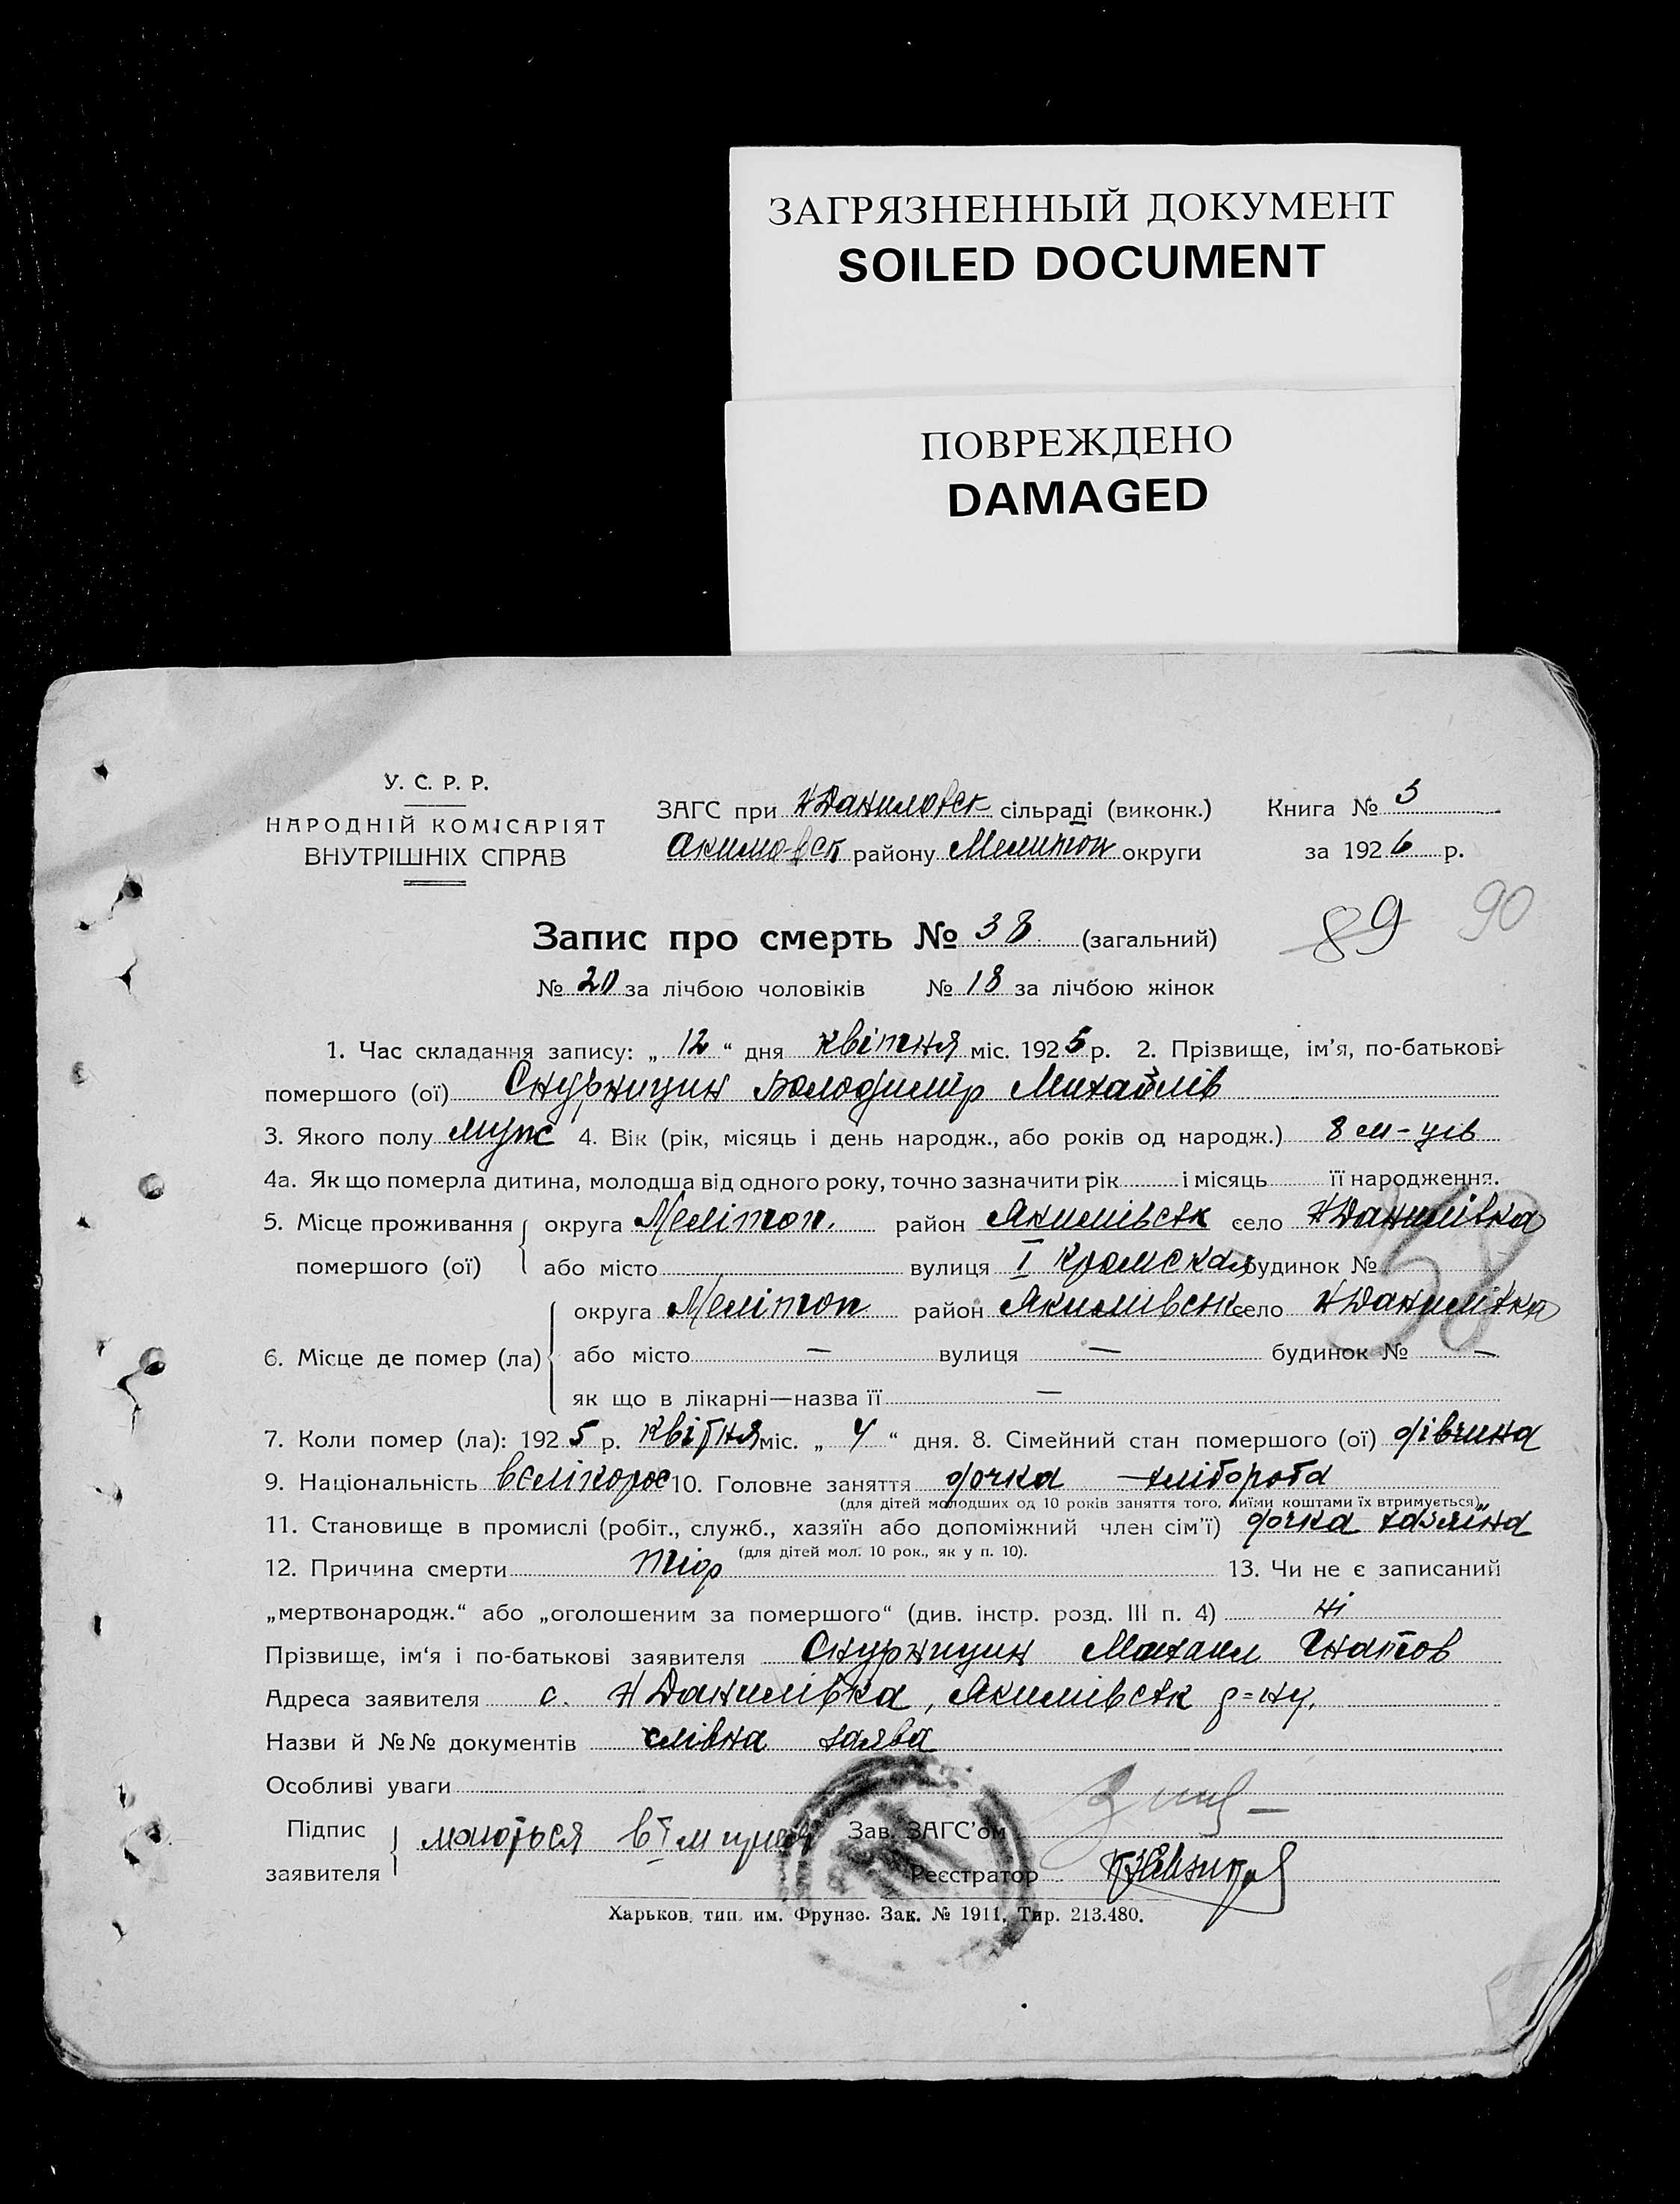 ЗАГРЯЗНЕННЫЙ ДОКУМЕНТ
SOILED DOCUMENT
ПОВРЕЖДЕНО
DAMAGED
У. С. Р. Р.
НАРОДНІЙ КОМІСАРІЯТ
ВНУТРІШНІХ СПРАВ
ЗАГС при НДаниловск сільраді (виконк.) Книга № 3
Акимовск району Мелитоп округи за 1926 р.
89 90
Запис про смерть № 38 (загальний)
№ 20 за лічбою чоловіків № 18 за лічбою жінок
1. Час складання запису: „ 12 “ дня квітня міс. 1925 р. 2. Прізвище, ім’я, по-батькові
помершого (ої) Снурницин Володимір Михайлів
3. Якого полу муж 4. Вік (рік, місяць і день народж., або років од народж.) 8 м-ців
4а. Як що померла дитина, молодша від одного року, точно зазначити рік і місяць її народження.
5. Місце проживання округа Мелітоп. район Якимівськ село НДанилівка
помершого (ої) або місто вулиця I Кромская будинок №
58
округа Мелітоп район Якимівськ село НДанилівка
6. Місце де помер (ла) або місто — вулиця — будинок № —
як що в лікарні—назва її —
7. Коли помер (ла): 1925 р. квітня міс. „ 4 “ дня. 8. Сімейний стан помершого (ої) дівчина
9. Національність велікорос 10. Головне заняття дочка хлібороба
(для дітей молодших од 10 років заняття того, чиїми коштами їх втримується)
11. Становище в промислі (робіт., служб., хазяїн або допоміжний член сім’ї) дочка хазяїна
(для дітей мол. 10 рок., як у п. 10).
12. Причина смерти 13. Чи не є записаний
„мертвонародж.“ або „оголошеним за помершого“ (див. інстр. розд. III п. 4) ні
Прізвище, ім‘я і по-батькові заявителя Снурницин Михаил Гнатов
Адреса заявителя с. НДанилівка, Якимівськ р=ну.
Назви й №№ документів слівна заява
Особливі уваги
Підпис заявителя маються в I м Зав. ЗАГС’ом
Реєстратор
Харьков, тип. им. Фрунзе. Зак. № 1911. Тир. 213.480.